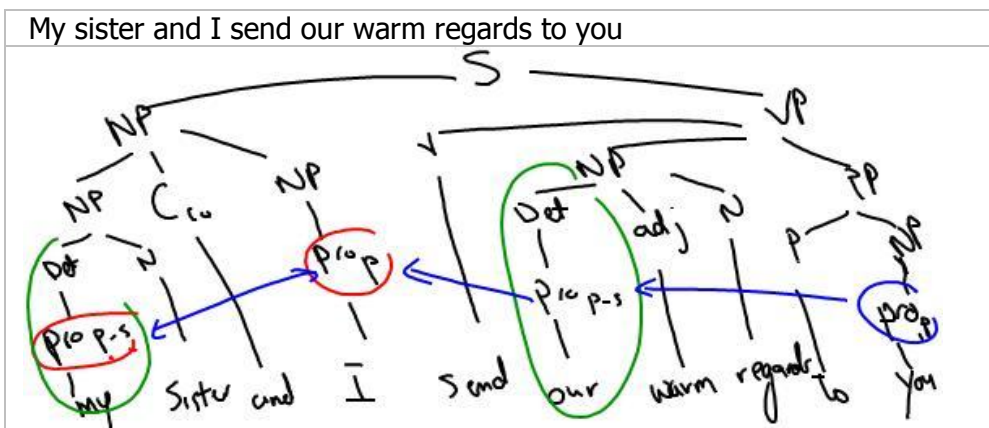 My sister and I send our warm regards to you
S
NP VP
NP C co NP V NP PP
Det N Pro p Det adj N P NP
Pro p-s Pro p-s Pro p
my Sister and I Send our warm regards to you